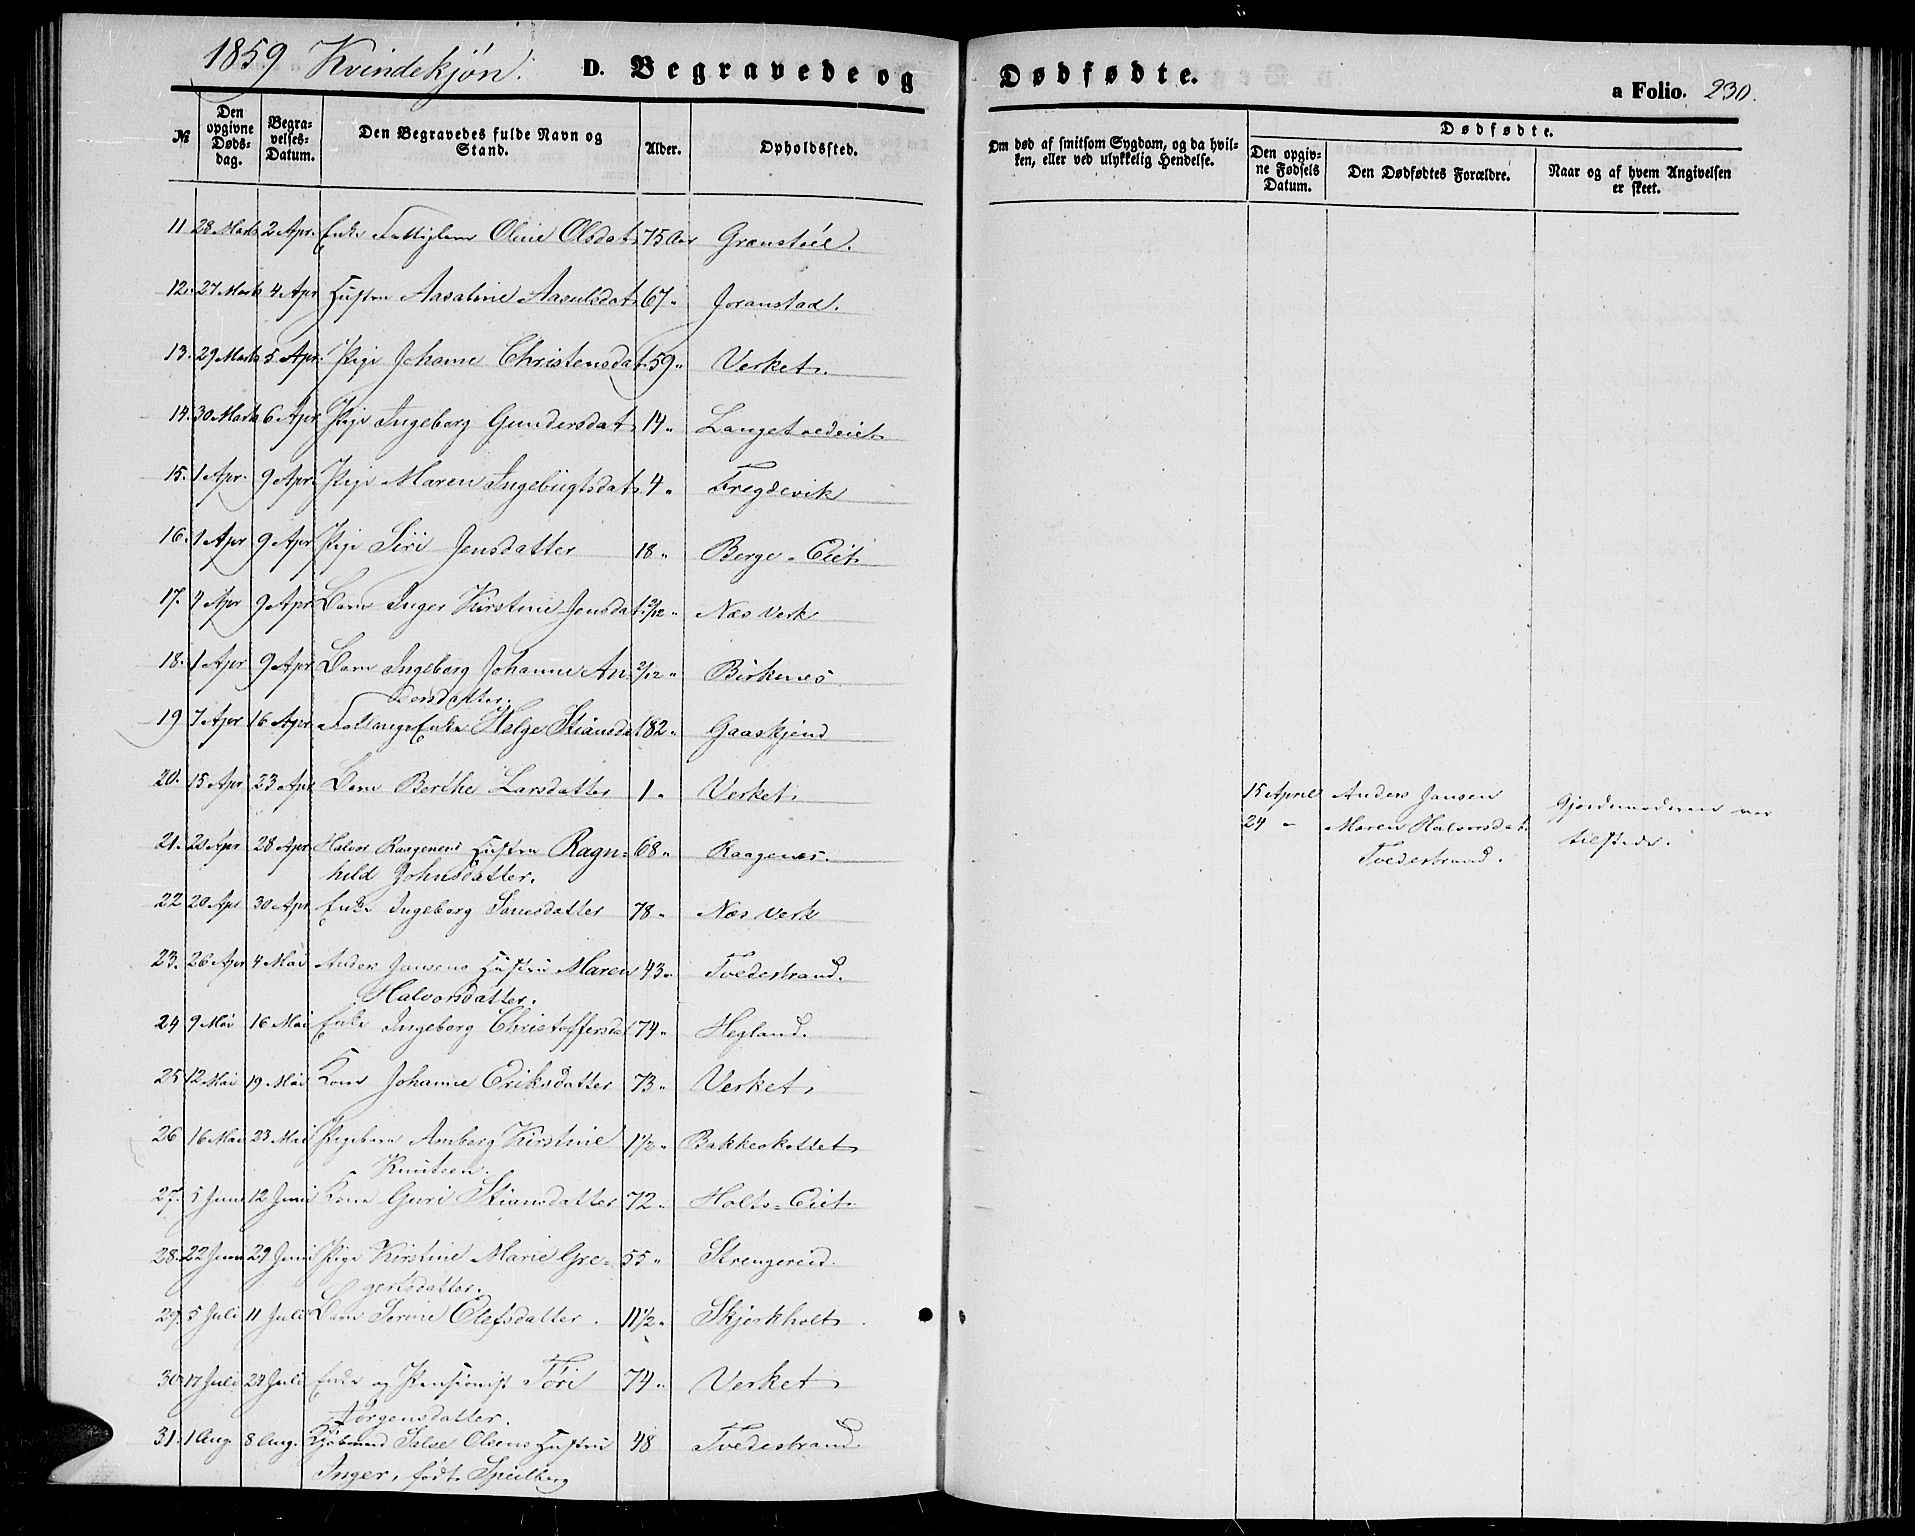 1859 Kvindekjøn. D. Begravede og Dødfødte. a Folio. 230.
№ Den opgivne Dødsdag. Begravelses-Datum. Den Begravedes fulde Navn og Stand. Alder. Opholdssted. Om død af smitsom Sygdom, og da hvilken, eller ved ulykkelig Hendelse. Dødfødte.
Den opgivne Fødsels Datum. Den Dødfødtes Forældre. Naar og af hvem Angivelsen er skeet.
11. 28 Marts 2 Apr. Enke Fattiglem Oline Olsdat. 75 Aar Grenstøl.
12. 27 Marts 4 Apr Hustru Aasaline Aasulsdat. 67 " Joranstad.
13. 29 Marts 5 Apr. Pige Johanne Christensdat. 59 " Verket.
14. 30 Marts 6 Apr Pige Ingeborg Gundersdat. 14 " Langetvedeiet
15. 1 Apr. 9 Apr. Pige Maren Ingebrigtsdat. 4 " Fregdevik
16. 1 Apr 9 Apr Pige Siri Jensdatter 18 " Berge-Eiet
17. 4 Apr 9 Apr Barn Inger Kirstine Jensdat. Næs Verk
18. 1 Apr 9 Apr Barn Ingeborg Johanne An- 2/12 " Birkenes
dersdatter.
19 7 Apr 16 Apr. Enke Helge Stiansdat 82 " Gaaskjend
20. 15 Apr 23 Apr Barn Berthe Larsdatter 1 " Verket
15 April Anders Jansen Gjordemoderen var
24 - Maren Halvorsdat. tilstede.
Tvedestrand.
21. 22 Apr 28 Apr. Halvor Raagenes Hustru Ragn- 68 " Raagenes.
hild Johnsdatter.
22 20 Apr 30 Apr. Enke Ingeborg Tønesdatter 78 " Næs Verk
23. 26 Apr 4 Mai Anders Jansens Hustru Maren 43 " Tvedestrand.
Halvorsdatter.
24 9 Mai 16 Mai Enke Ingeborg Christoffersdat 74 " Hegland.
25 12 Mai 19 Mai Kone Johanne Eriksdatter 73 " Verket
26 16 Mai 23 Mai Pigebarn Amberg Kirstine 1 1/2 " Bakkeskottet
Knutsen.
27. 5 Juni 12 Juni Kone Guri Stiansdatter 72 " Holts-Eiet.
28. 22 Juni 29 Juni Pige Kirstine Marie Gre- 55 " Strengereid.
gertsdatter.
29. 5 Juli 11 Juli Barn Sørine Olefsdatter. 11 1/2 " Skjerkholt
30. 17 Juli 24 Juli Enke og Pensionist Tøri 74 " Verket
Jørgensdatter.
31. 1 Aug. 8 Aug. Kjøbmand Salve Olsens Hustru 48 Tvedestrand.
Inger, født Speilberg